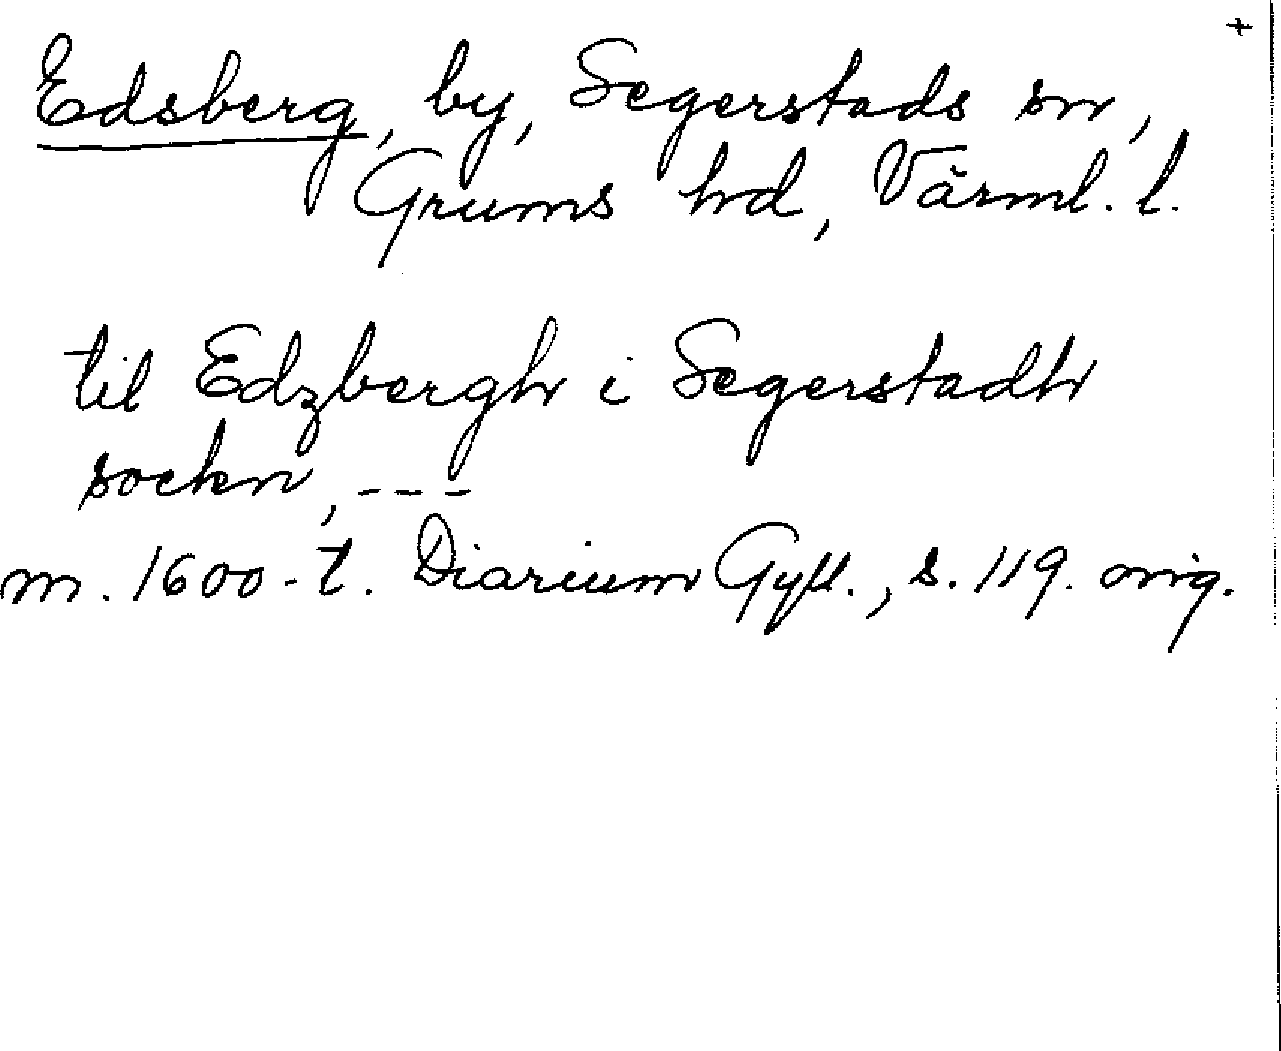 +
Edsberg, by, Segerstads sn,
Grums hd, Värml. l.
til Edzbergh i Segerstadh
sockn, ---
m. 1600-t. Diarium Gyll., s. 119. orig.